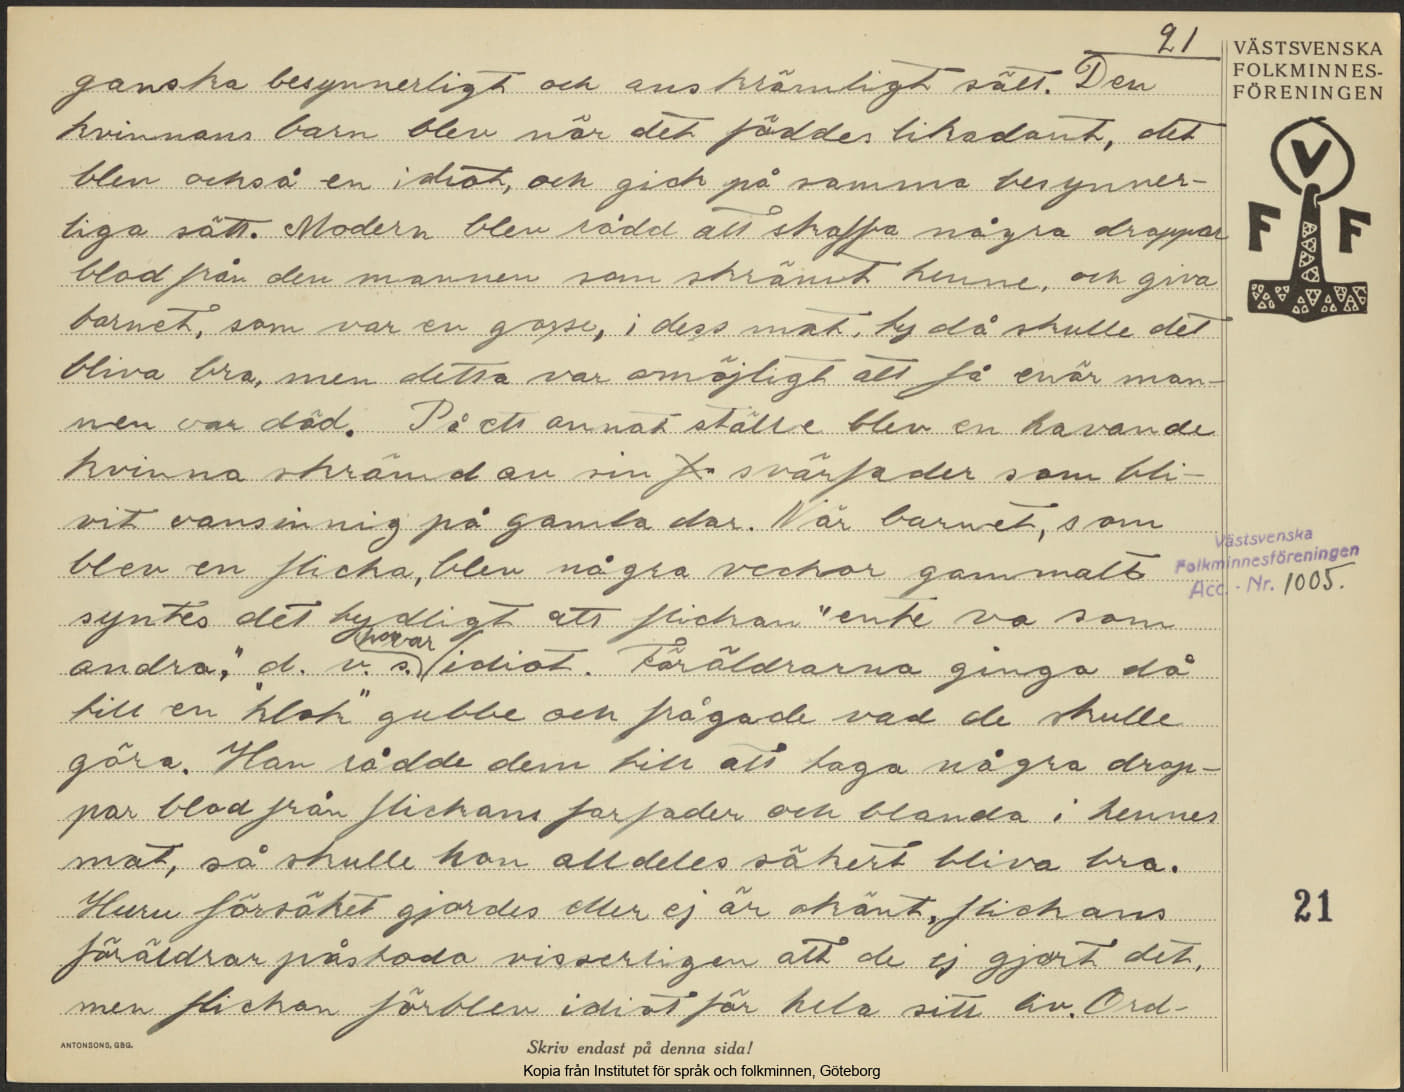 21
ganska besynnerligt och anskrämligt sätt. Den
kvinnans barn blev när det föddes likadant, det
blev också en idiot, och gick på samma besynner-
liga sätt. Modern blev rådd att skaffa några droppar
blod från den mannen som skrämt henne, och giva
barnet, som var en gosse, i dess mat, ty då skulle det
bliva bra, men detta var omöjligt att få enär man-
nen var död. På ett annat ställe blev en havande
kvinna skrämd av sin svärfader som bli-
vit vansinnig på gamla dar. När barnet, som
blev en flicka, blev några veckor gammalt
syntes det tydligt att flickan "ente va som
andra," d. v. s. hon var idiot. Föräldrarna gingo då
till en "klok" gubbe och frågade vad de skulle
göra. Han rådde dem till att taga några drop-
par blod från flickans farfader och blanda i hennes
mat, så skulle hon alldeles säkert bliva bra.
Huru försöket gjordes eller ej är okänt, flickans
föräldrar påstodo visserligen att de ej gjort det,
men flickan förblev idiot för hela sitt liv. Ord-
VÄSTSVENSKA
FOLKMINNES-
FÖRENINGEN
V
F F
Västsvenska
Folkminnesföreningen
Acc. - Nr. 1005.
21
ANTONSONS, GBG.
Skriv endast på denna sida!
Kopia från Institutet för språk och folkminnen, Göteborg